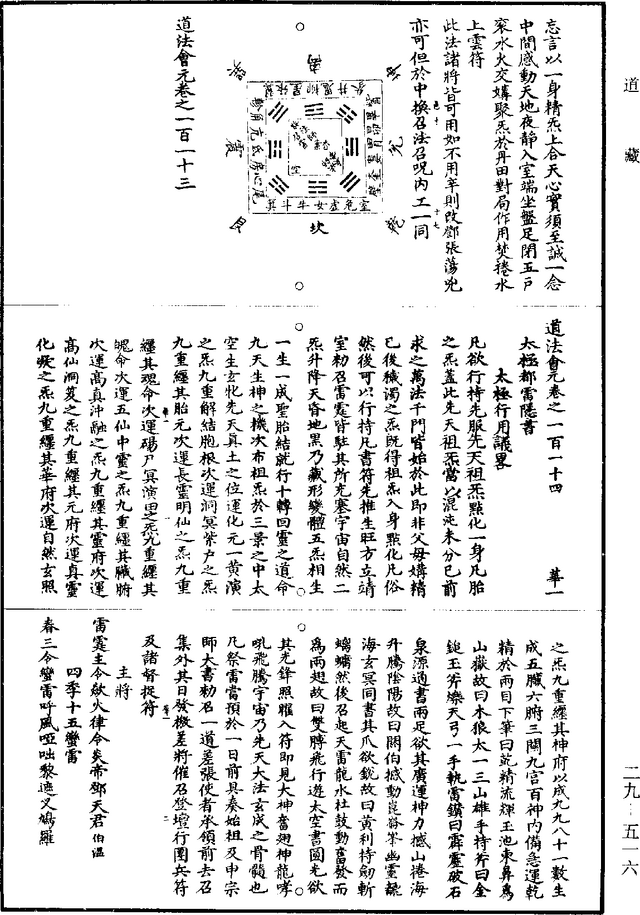 道藏
忘言以一身精炁上合天心實須至誠一念
中間感動天地夜靜入室端坐盤足閉五戶
衮水火交媾聚炁於丹田對局作用焚捲水
上雲符
此法諸將皆可用如不用辛則改鄧張蕩兇
亦可但於中換召法召呪内工一同
道法會元卷之一百一十三
道法會元卷之一百一十四 華一
太極都雷隱書
太極行用議畧
凡欲行持先服先天祖炁點化一身凡胎
之炁蓋此先天祖炁當以混沌未分已前
求之萬法千門皆始於此即非父母媾精
已後穢濁之炁既得祖炁入身點化凡俗
然後可以行持凡書符先推生旺方立靖
室勑召雷霆皆駐其所充塞宇宙自然二
炁升降天昏地黑乃藏形變體五炁相生
一生一成聖胎結就行十轉回靈之道命
九天生神之機次布祖炁於三景之中太
空生玄化先天真土之位運化元一黄演
之炁九重解結胞根次運洞冥紫戶之炁
九重經其胎元次運長靈明仙之炁九重
經其魂命次運碭尸冥演由之炁九重經其
魄命次運五仙中靈之炁九重經其臟腑
次運高真沖融之炁九重經其靈府次運
高仙洞笈之炁九重經其元府次運真靈
化凝之炁九重經其華府次運自然玄照
之炁九重經其神府以成九九八十一數生
成五臟六腑三關九宮百神内備急運乾
精於兩目下筆曰乾精流輝玉池東鼻爲
山嶽故曰木狼太一三山雄手持斧曰金
鎚玉斧爍天弓一手執雷鑽曰霹靂破石
泉源通書兩足欲其廣運神力撼山捲海
升騰陰陽故曰閼伯撼動崑崙峯幽靈
海玄冥同書其爪欲銳故曰黄利持劒斬
然後召起天雷龍水社鼓動奮發而
爲兩翅故曰雙脾飛行遊太空書圖光欲
其光鋒照耀入符即見大神奮翅神龍哮
吼飛騰宇宙乃先天大法玄成之骨髓也
凡祭雷當預於一日前具奏始祖及申宗
師大書勑召一道差張使者承領前去召
集外其日發檄差將催召登壇行圍兵符
及諸督捉符
主將
雷霆主令歘火律令炎帝鄧天君伯温
四季十五蠻雷
春三令蠻雷呼風啞咄黎遮叉鳩羅
二九-五一六